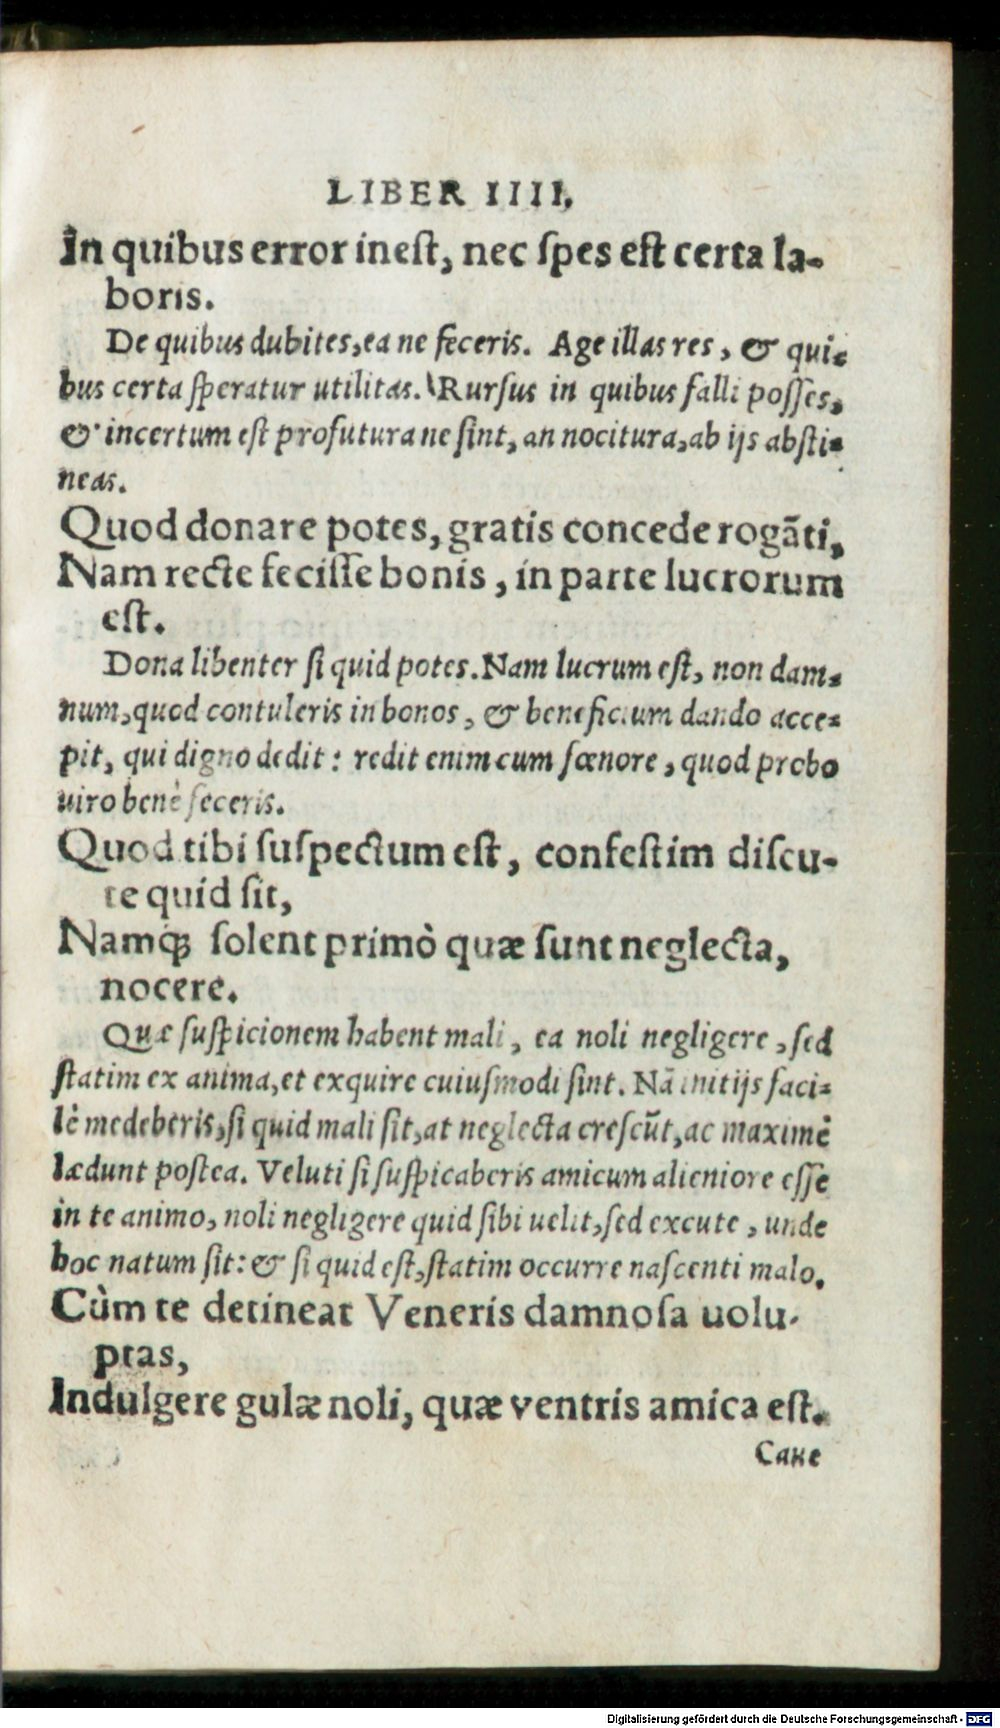 LIBER IIII.
In quibus error inest, nec ſpes est certa la-
boris.
De quibus dubites, ea ne feceris. Age illas res, & qui-
bus certa ſperatur utilitas. Rurſus in quibus falli poſſes,
& incertum eſt profutura ne ſint, an nocitura, ab ijs abſti-
neas.
Quod donare potes, gratis concede rogāti,
Nam recte feciſſe bonis, in parte lucrorum
eſt.
Dona libenter ſi quid potes. Nam lucrum eſt, non dam-
num, quod contuleris in bonos, & beneficium dando acce-
pit, qui digno dedit: redit enim cum fœnore, quod probo
uiro benè feceris.
Quod tibi ſuſpectum eſt, confeſtim diſcu-
te quid ſit,
Namq; ſolent primò quæ ſunt neglecta,
nocere.
Quæ ſuſpicionem habent mali, ea noli negligere, ſed
ſtatim ex anima, et exquire cuiuſmodi ſint. Nā initijs faci-
lè medeberis, ſi quid mali ſit, at neglecta creſcūt, ac maximè
lædunt poſtea. Veluti ſi ſuſpicaberis amicum alieniore eſſe
in te animo, noli negligere quid ſibi uelit, ſed excute, unde
hoc natum ſit: & ſi quid eſt, ſtatim occurre naſcenti malo.
Cùm te detineat Veneris damnoſa uolu-
ptas,
Indulgere gulæ noli, quæ ventris amica eſt.
Caue
Digitalisierung gefördert durch die Deutsche Forschungsgemeinschaft - DFG